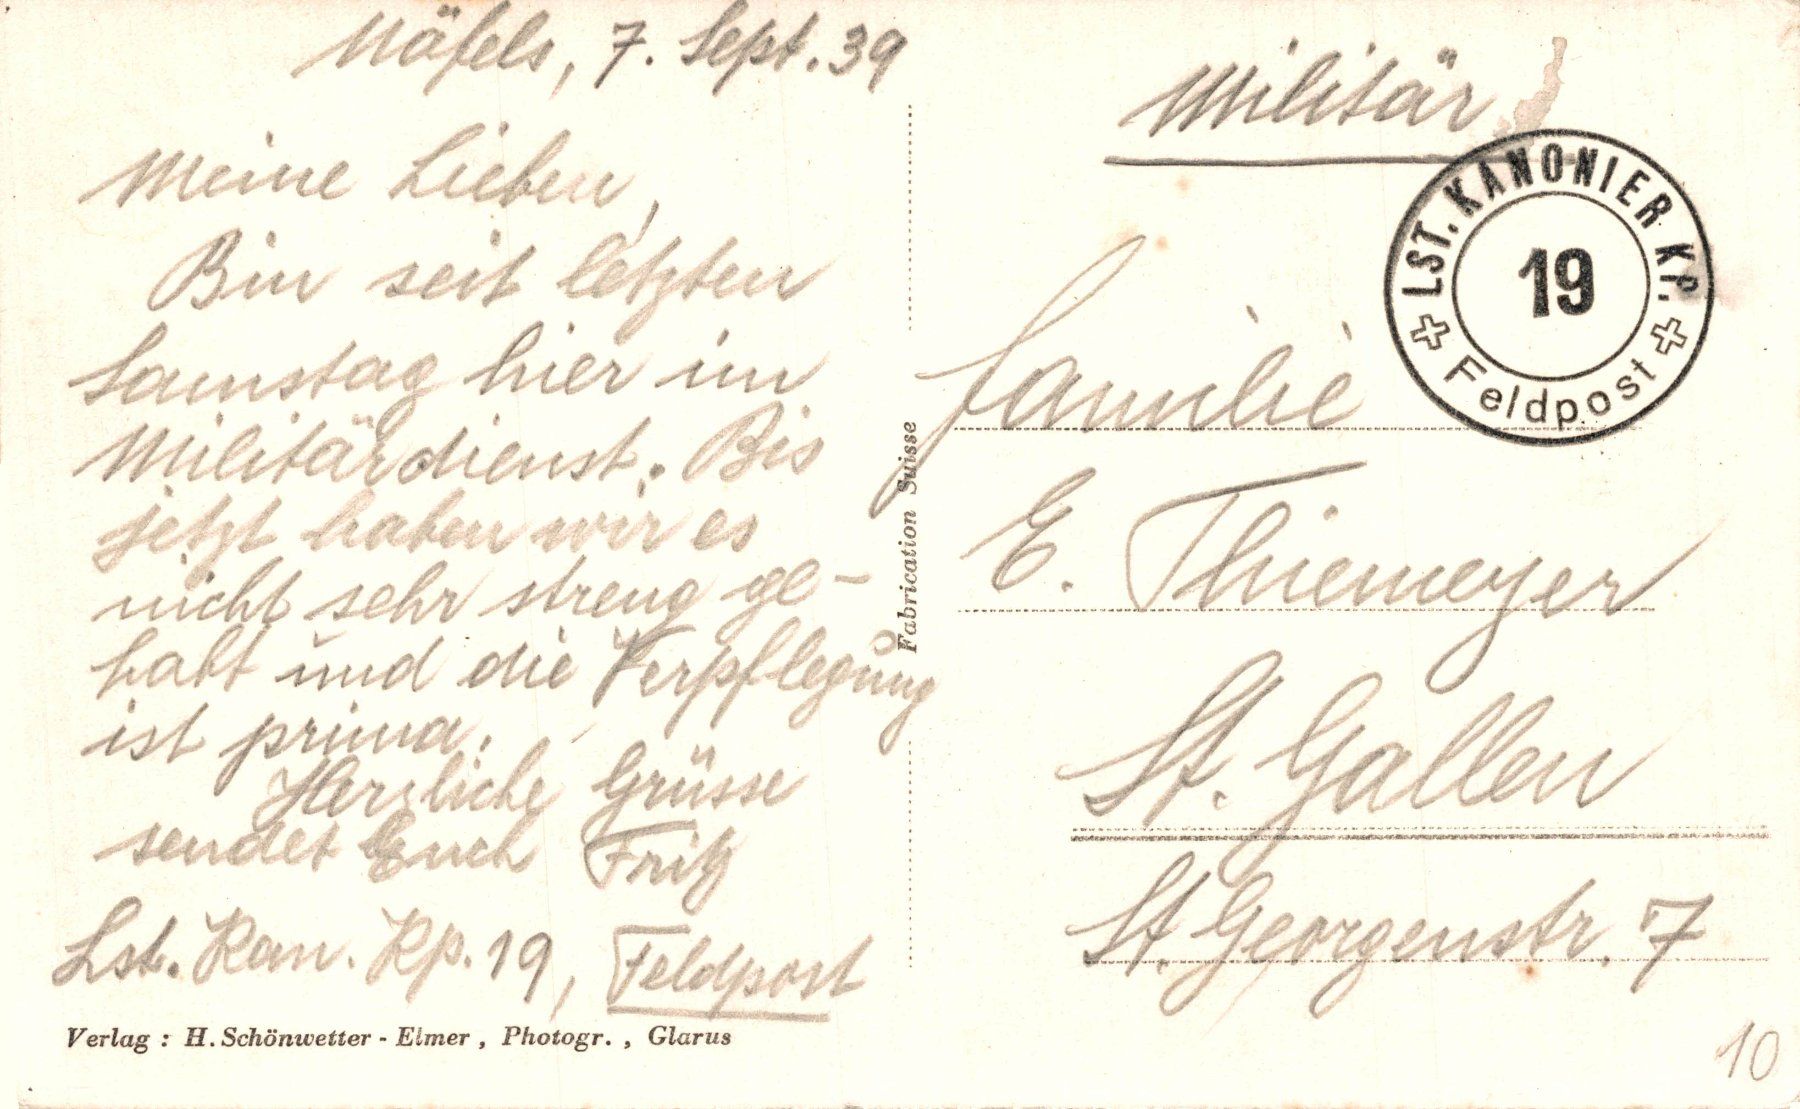 Näfels, 7. Sept. 39
Meine Lieben,
Bin seit letzten
Samstag hier im
Militärdienst. Bis
jetzt haben wir es
nicht sehr streng ge-
habt und die Verpflegung
ist prima.
Herzliche Grüsse
sendet Euch Fritz
Lst. Kan. Kp. 19, Feldpost
Verlag : H. Schönwetter - Elmer , Photogr. , Glarus
Fabrication Suisse
Militär
LST. KANONIER KP.
19
Feldpost
Familie
E. Thiemeyer
St. Gallen
St. Georgenstr. 7
10